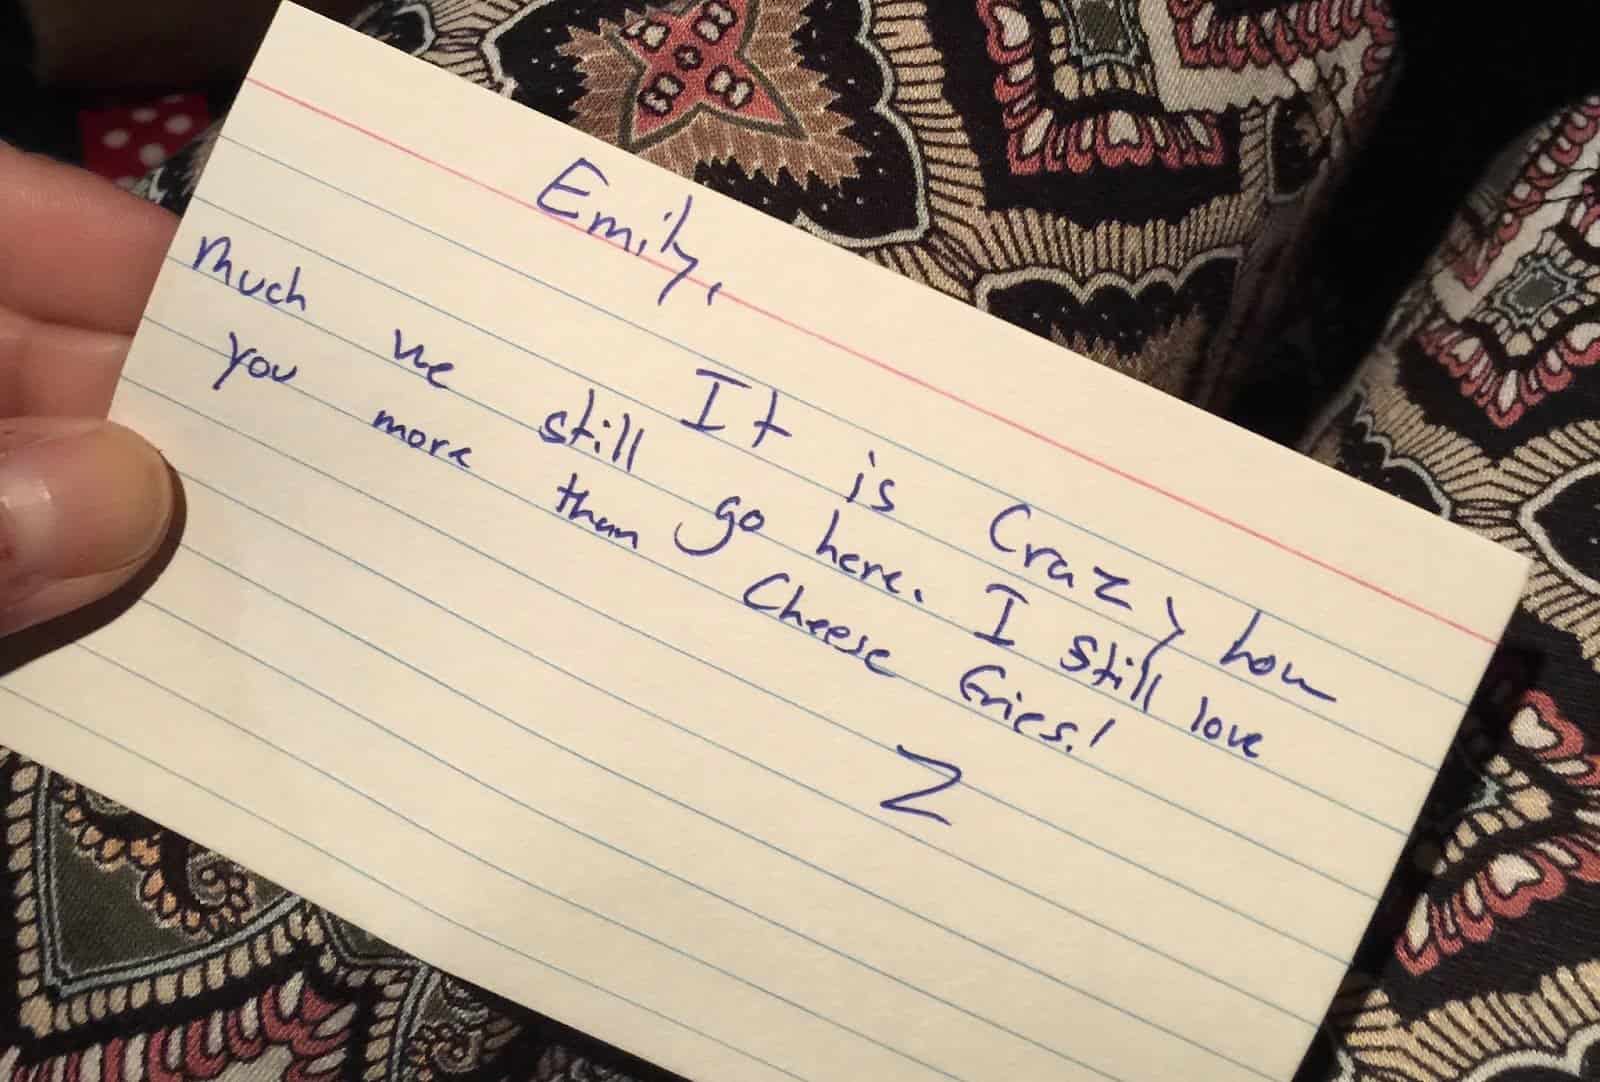 Emily,
It is Crazy how
much we still go here. I still love
you more than Cheese fries!
Z